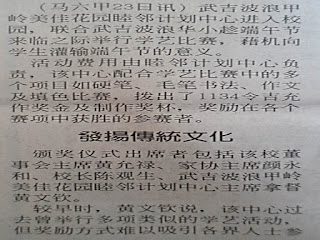 (马六甲23日讯)武吉波浪甲
岭美佳花园睦邻计划中心进入校
园,联合武吉波浪华小趁端午节
来临之际举行学艺比赛,藉机向
学生灌输端午节的意义。
活动费用由睦邻计划中心负
责,该中心配合学艺比赛中的多
个项目如硬笔、毛笔书法、作文
及填色比赛,拨出了1134令吉充
作奖金及制作奖杯,奖励在各个
赛项中获胜的参赛者。
發揚傳統文化
颁奖仪式出席者包括该校董
事会主席黄允禄、家协主席颜永
和、校长陈观生、武吉波浪甲岭
美佳花园睦邻计划中心主席拿督
黄文钦。
较早时,黄文钦说,该中心过
去曾举行多项类似的学艺活动,
但奖励方式难以吸引各界人士参